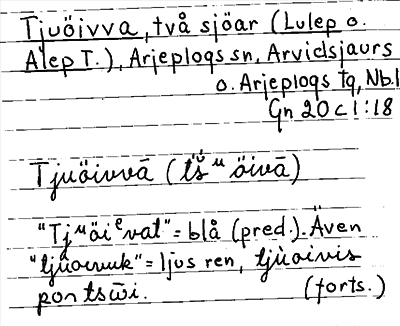 Tjuöivva, två sjöar (Lulep o.
Alep T.), Arjeplogs sn, Arvidsjaurs
o. Arjeplogs tg, Nb.l
Gn 20 c 1:18
Tjuöivvā (tš́ᵘöivā)
"Tjᵘöiᵉvat" = blå (pred.). Även
"tjuoivuk" = ljus ren, tjùoivis
(forts.)